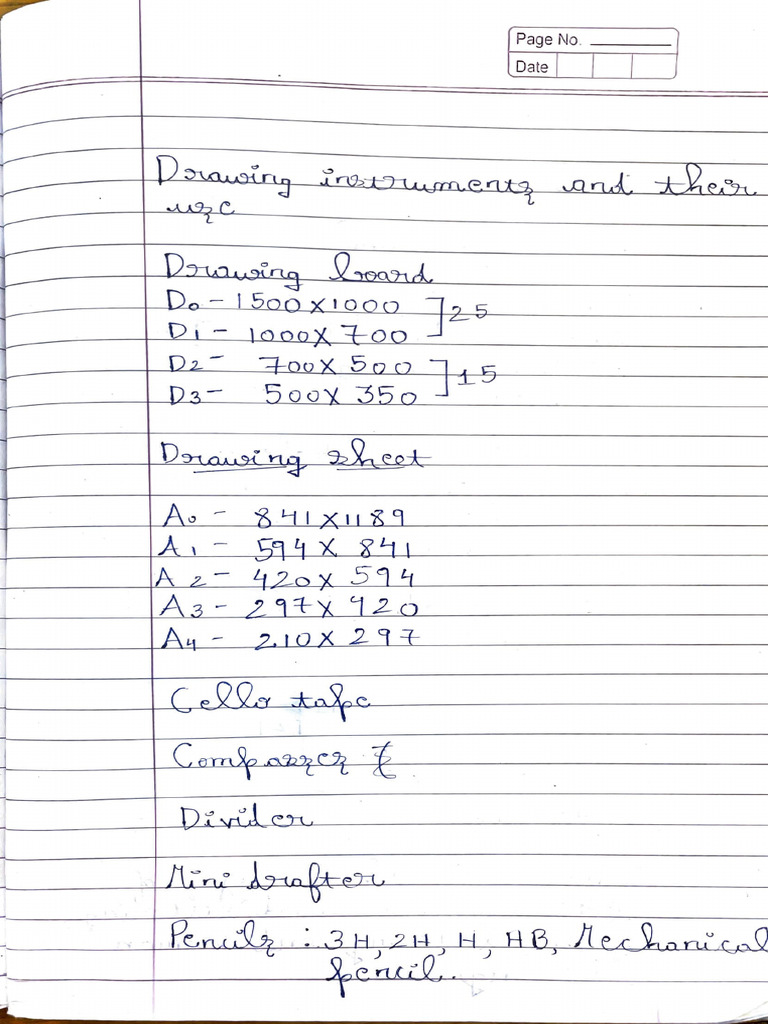 Page No.
Date
Drawing instruments and their
use
Drawing board
D0 - 1500 X 1000 ] 25
D1 - 1000 X 700
D2 - 700 X 500 ] 15
D3 - 500 X 350
Drawing sheet
A0 - 841 X 1189
A1 - 594 X 841
A2 - 420 X 594
A3 - 297 X 420
A4 - 210 X 297
Cello tape
Compasses
Divider
Mini drafter
Pencils : 3H, 2H, H, HB, Mechanical
pencil.